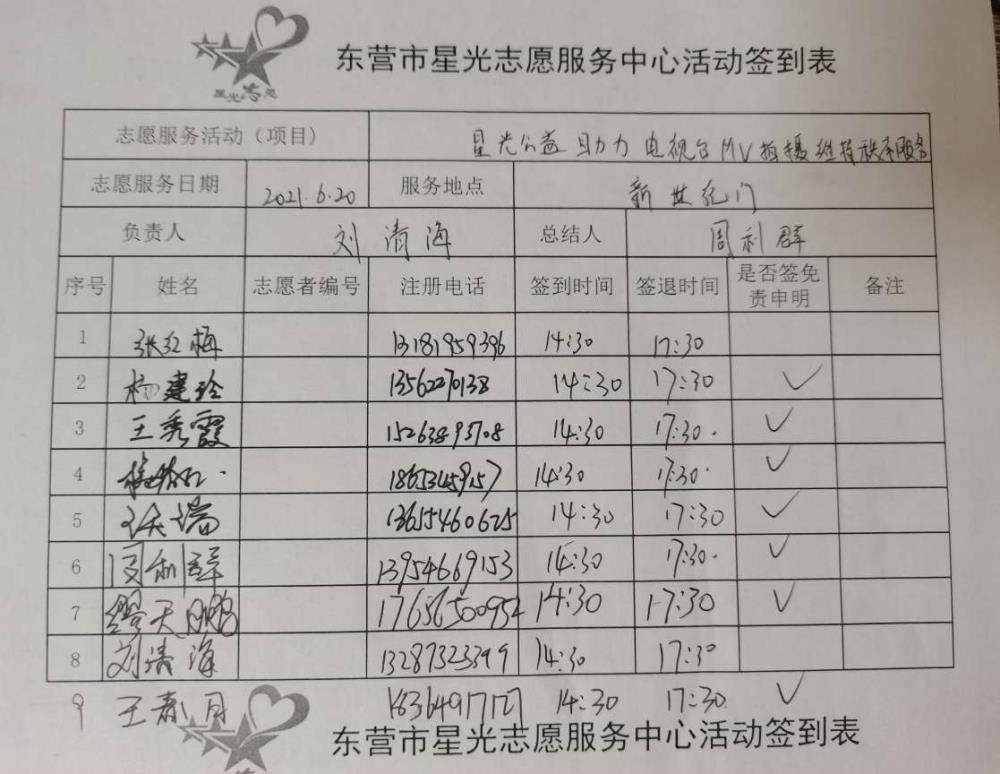 星光志愿
东营市星光志愿服务中心活动签到表
志愿服务活动（项目） 星光公益助力电视台MV拍摄维持秩序服务
志愿服务日期 2021.6.20 服务地点 新世纪门
负责人 刘清海 总结人 周利群
序号 姓名 志愿者编号 注册电话 签到时间 签退时间 是否签免责申明 备注
1 张红梅 13181959396 14:30 17:30
2 杨建玲 13562270138 14:30 17:30 ✓
3 王秀霞 15263893708 14:30 17:30. ✓
4 18653459157 14:30 17:30. ✓
5 13655460625 14:30 17:30 ✓
6 周利群 13954669153 14:30 17:30. ✓
7 天鹏 17656500954 14:30 17:30 ✓
8 刘清海 13287323399 14:30 17:30
9 王春月 18364917127 14:30 17:30. ✓
东营市星光志愿服务中心活动签到表